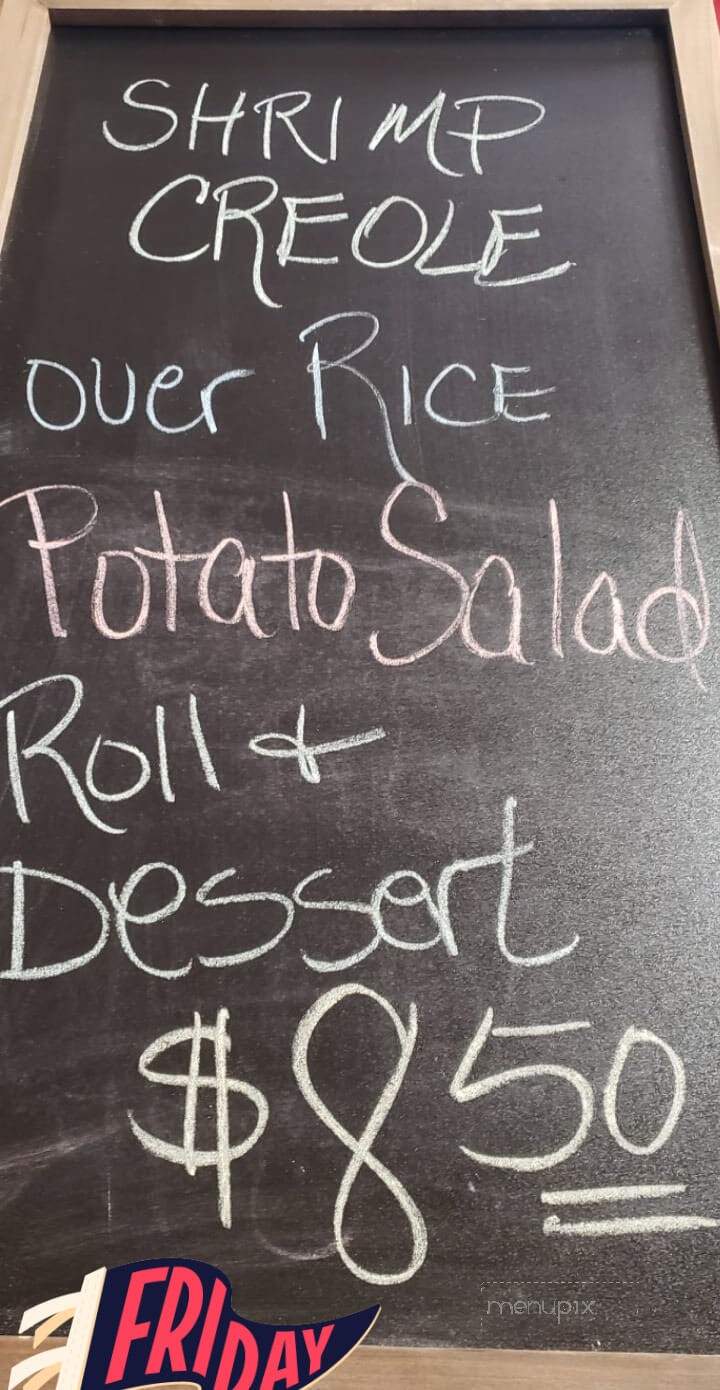 SHRIMP
CREOLE
over RICE
Potato Salad
Roll &
Dessert
$8 50
menupix
FRIDAY